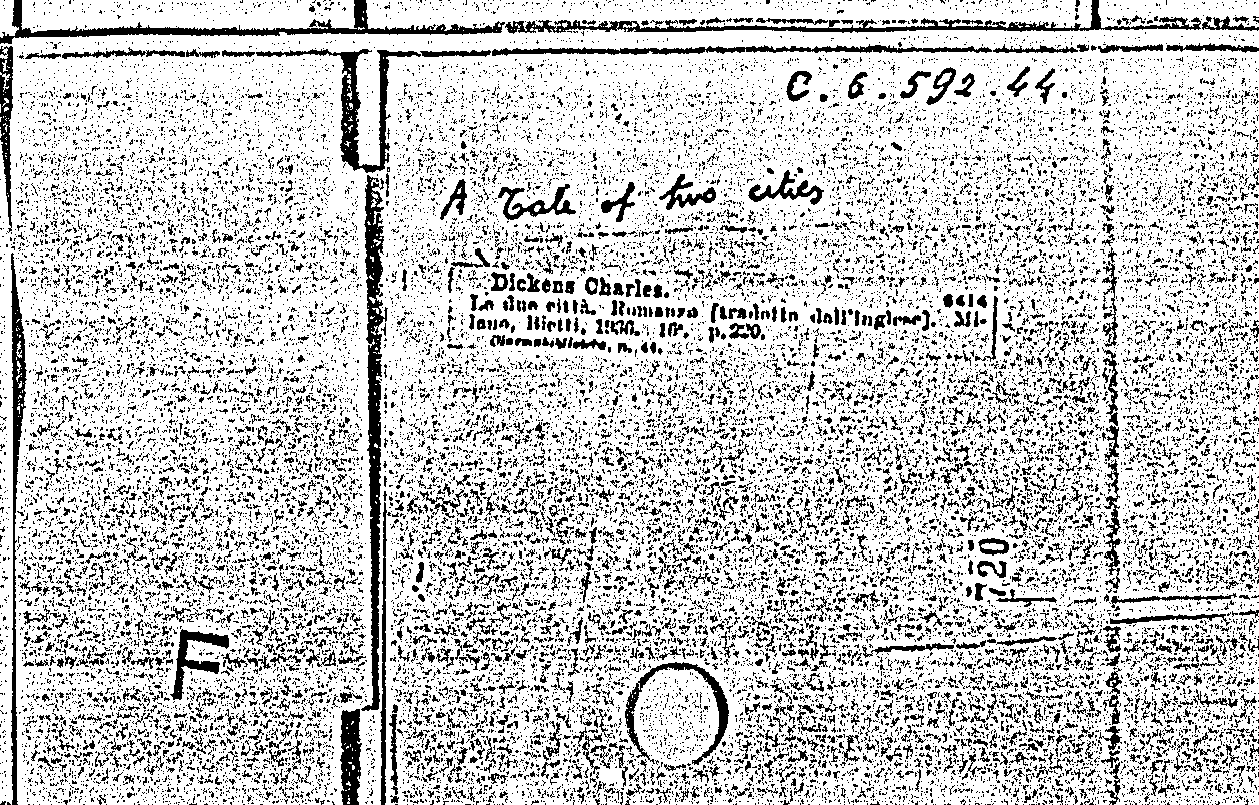 C. 6. 592. 44.
A Tale of two cities
Dickens Charles.
6414
Le due città. Romanzo [tradotto dall'inglese]. Mi-
lano, Bietti, 1930. 16°. p. 220.
n. 44.
720
F